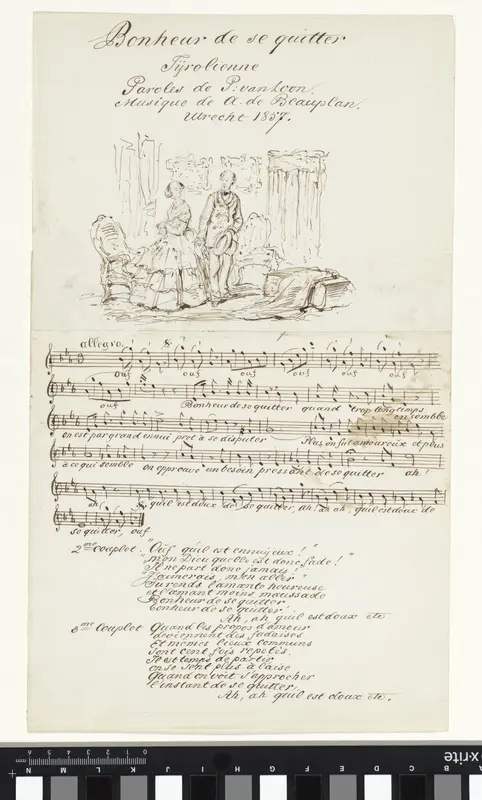 Bonheur de se quitter
Tÿrolienne
Paroles de P: van Loon.
Musique de A. de Beauplan.
Utrecht 1857.
allegro,
ouf ouf ouf ouf ouf
ouf Bonheur de se quitter quand trop longtemps
on semble
on est par grand ennui pret à se disputer Plus on fut amoureux et plus
à ce qui semble on approuve un besoin pressant de se quitter ah!
ah qu'il est doux de se quitter, ah! ah ah, qu'il est doux de
se quitter, ouf
2me couplet. "Ouf qu'il est ennuyeux!"
"mon Dieu qu'elle est donc fade!"
"Il ne part donc jamais"
"J'aimerais, m'en aller"
Tu rends l'amante heureuse
et l'amant moins maussade
Bonheur de se quitter
bonheur de se quitter!
Ah, ah qu'il est doux etc.
3me Couplet Quand les propos d'amour
deviennent des fadaises
Et mêmes lieux communs
Sont cent fois repetés.
Il est temps de partir
on se sent plus à l'aise
Quand on voit s'approcher
l'instant de se quitter,
Ah, ah qu'il est doux etc.
x-rite
6 5 4 3 2 1 0
N M L K J I H G F E D C B A